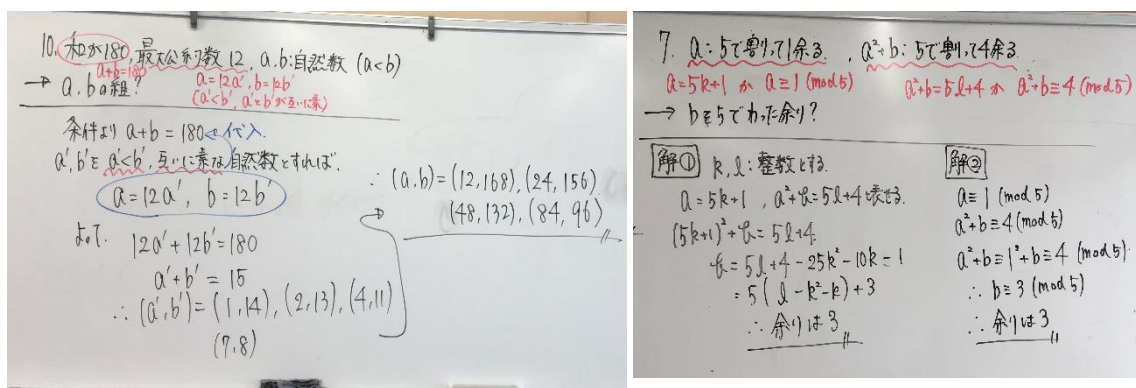 10. 和が180, 最大公約数12, a,b:自然数 (a<b)
a+b=180 a=12a', b=12b'
→ a,bの組? (a'<b', a'とb'が互いに素)
条件より a+b=180 ←代入
a',b'を a'<b', 互いに素な自然数とすれば.
a=12a', b=12b'
よって.
12a'+12b'=180
a'+b'=15
∴ (a',b')=(1,14), (2,13), (4,11)
(7,8)
∴ (a,b)=(12,168), (24,156)
(48,132), (84,96)
7. a:5で割って1余る, a²+b:5で割って4余る
a=5k+1 か a≡1 (mod 5) a²+b=5l+4 か a²+b≡4 (mod 5)
→ bを5でわった余り?
解① k,l:整数とする.
a=5k+1, a²+b=5l+4と表せる.
(5k+1)²+b=5l+4.
b=5l+4-25k²-10k-1
=5(l-k²-k)+3
∴ 余りは3
解②
a≡1 (mod 5)
a²+b≡4 (mod 5)
a²+b≡1²+b≡4 (mod 5).
∴ b≡3 (mod 5)
∴ 余りは3